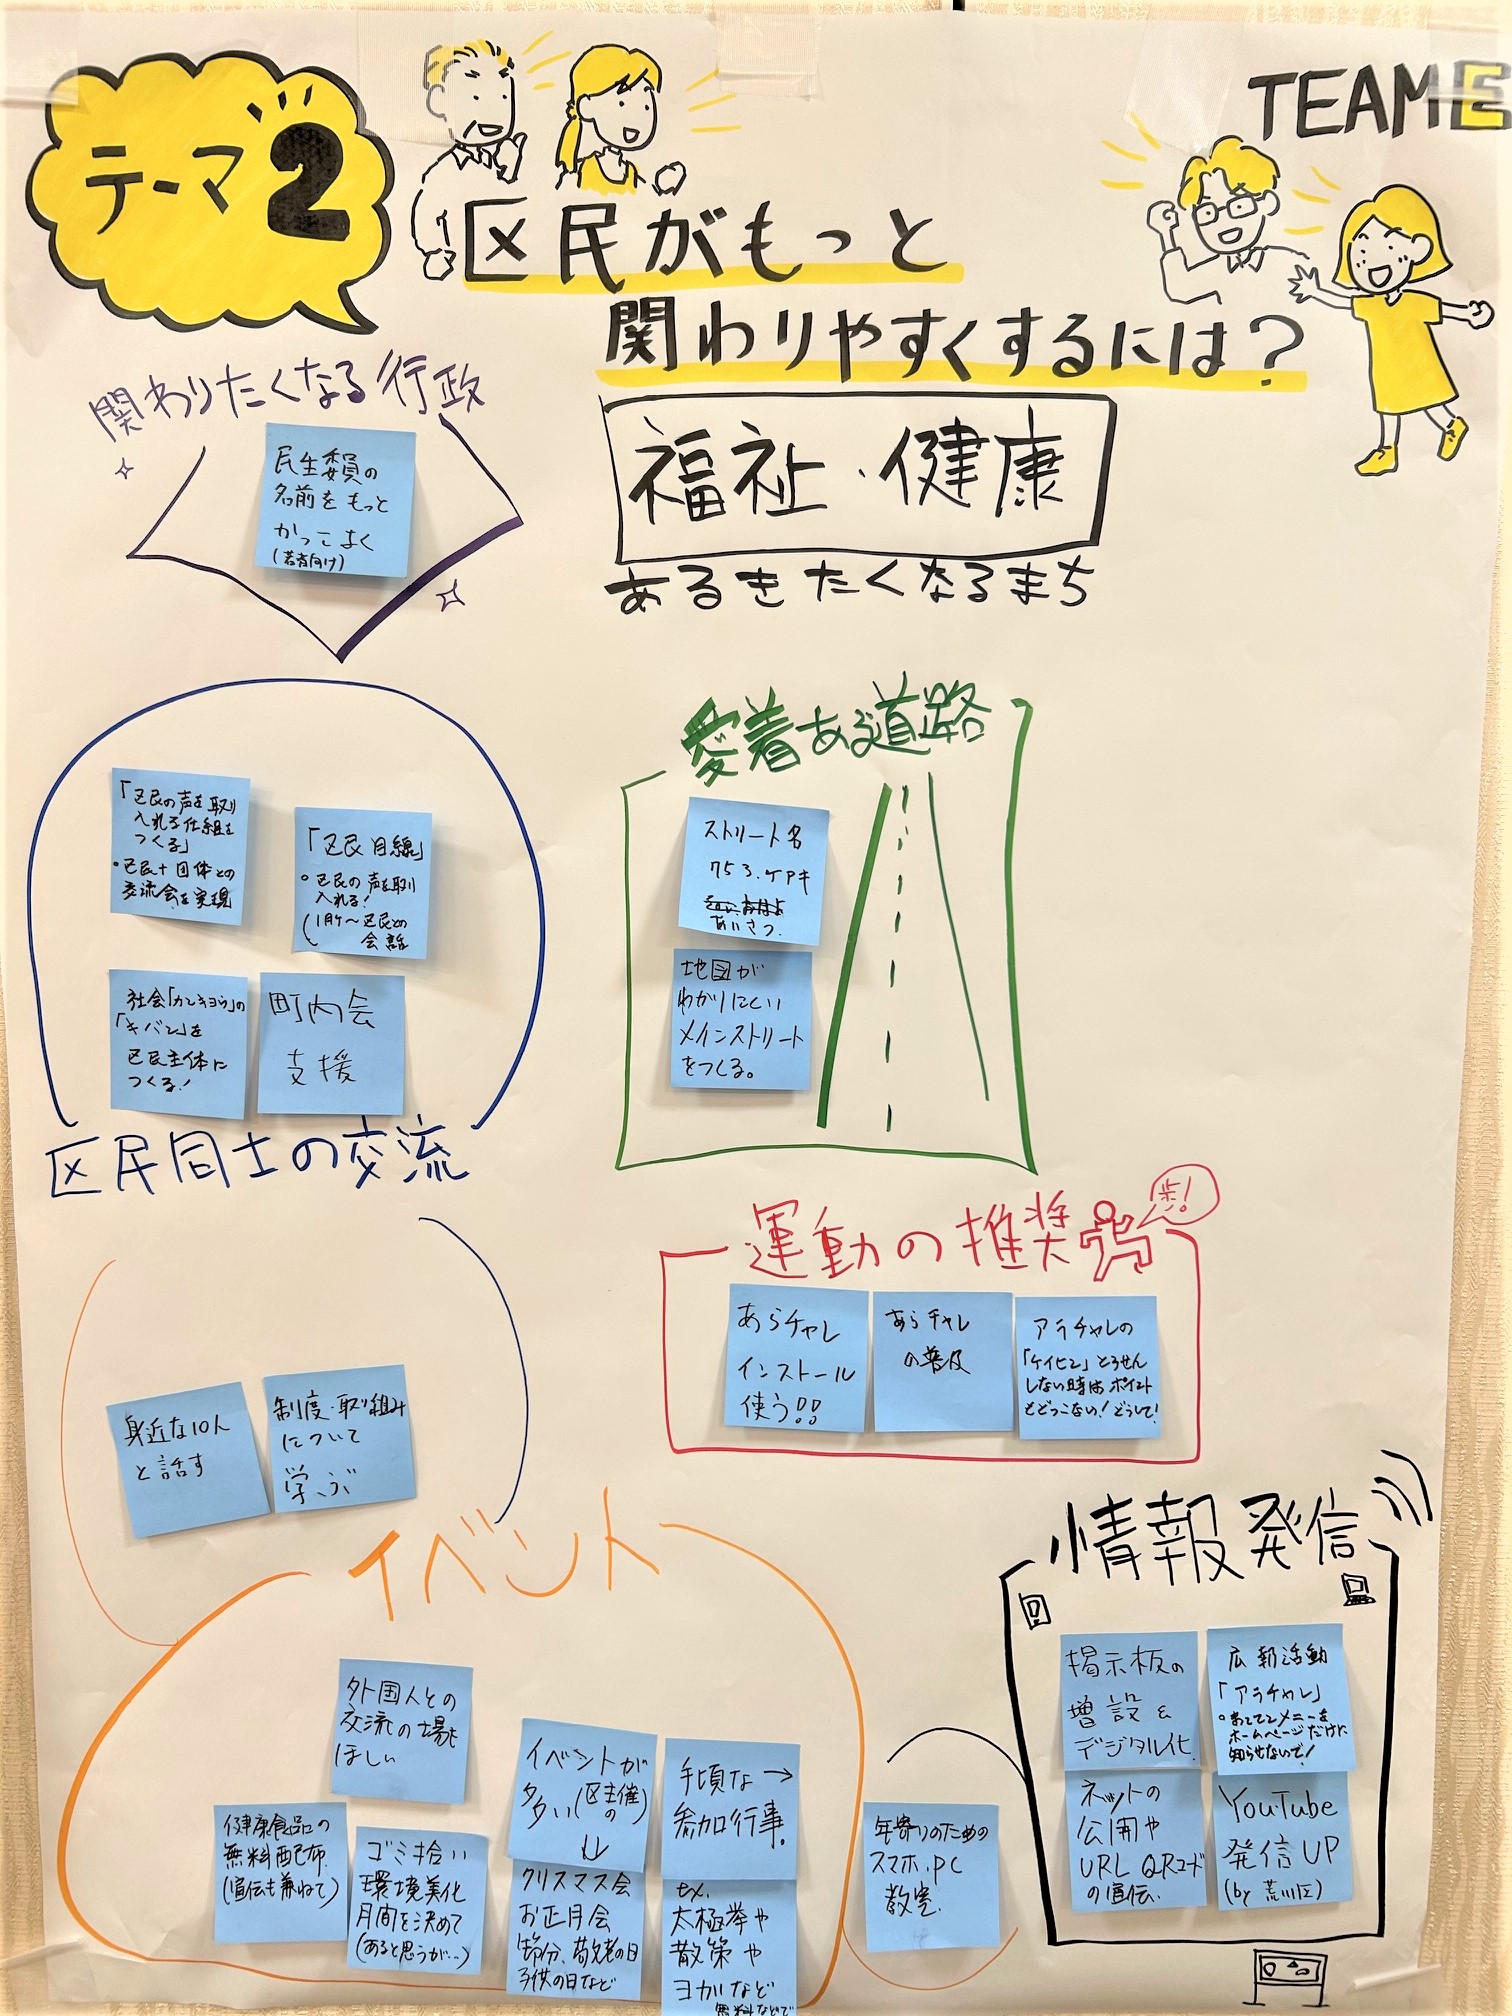 テーマ2
TEAM E
区民がもっと
関わりやすくするには？
福祉・健康
あるきたくなるまち
関わりたくなる行政
民生委員の
名前をもっと
かっこよく
(若者向け)
「区民の声を取り
入れる仕組を
つくる」
・区民+団体との
交流会を実現
「区民目線」
・区民の声を取り
入れる！
(1月ケ〜区民との
会話
社会「カンキョウ」の
「キバン」を
区民主体に
つくる！
町内会
支援
区民同士の交流
愛着ある道路
ストリート名
753.ケアキ
あいさつ.
地図が
わかりにくい
メインストリート
をつくる。
運動の推奨
歩！
あらチャレ
インストール
使う!!
あらチャレ
の普及
アラチャレの
「ケイヒン」とうせん
しない時は、ポイント
もどってこない！どうして！
身近な10人
と話す
制度・取り組み
について
学ぶ
イベント
外国人との
交流の場も
ほしい
健康食品の
無料配布.
(宣伝も兼ねて)
ゴミ拾い
環境美化
月間を決めて
(あると思うが…)
イベントが
多い(区主催の)
クリスマス会
お正月会
節分、敬老の日
子供の日など
手頃な→
参加行事.
ex.
太極拳や
散策や
ヨガなど
無料などで
年寄りのための
スマホ.PC
教室.
情報発信
掲示板の
増設&
デジタル化.
広報活動
「アラチャレ」
ホームページだけに
知らせないで！
ネットの
公開や
URL QRコード
の宣伝.
YouTube
発信UP
(by 荒川区)